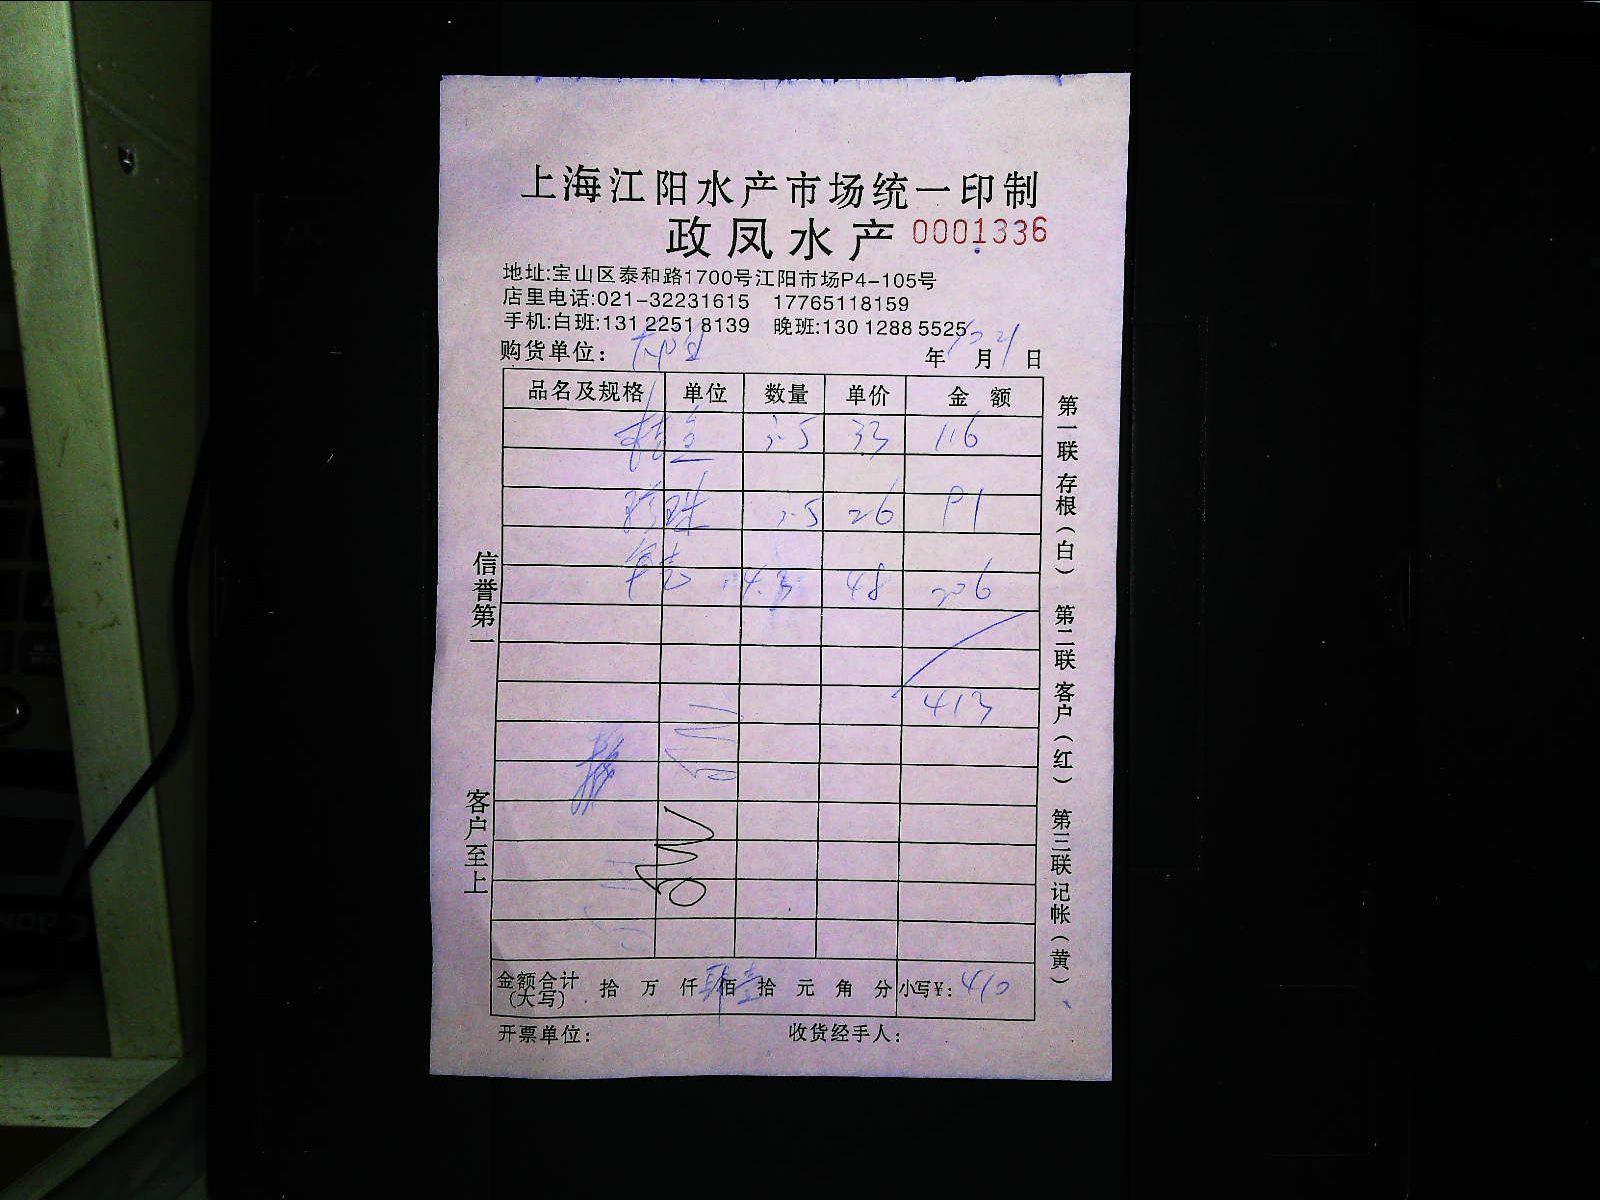 上海江阳水产市场统一印制
政凤水产 0001336
地址:宝山区泰和路1700号江阳市场P4-105号
店里电话:021-32231615 17765118159
手机:白班:131 2251 8139 晚班:130 1288 5525
购货单位: 年 月 21 日
品名及规格 单位 数量 单价 金 额
桂鱼 3.5 33 116
珍珠 3.5 26 91
4.3 48 206
413
信誉第一
客户至上
第一联 存根(白) 第二联 客户(红) 第三联 记帐(黄)
金额合计(大写) 拾 万 仟 肆佰 壹拾 元 角 分 小写¥: 410
开票单位: 收货经手人: